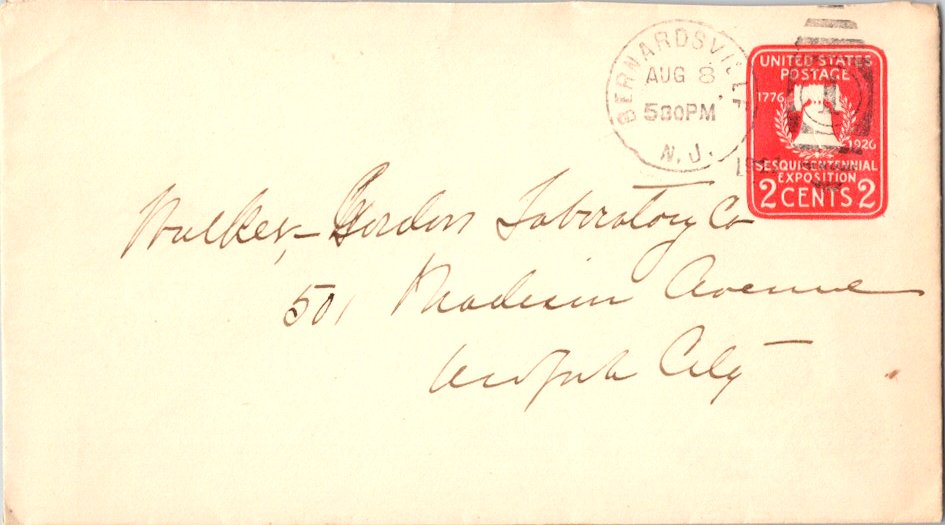 BERNARDSVILLE
AUG 8
530PM
N.J.
UNITED STATES
POSTAGE
1776
1926
SESQUICENTENNIAL
EXPOSITION
2 CENTS 2
Walker-Gordon Laboratory Co
501 Madison Avenue
New York City